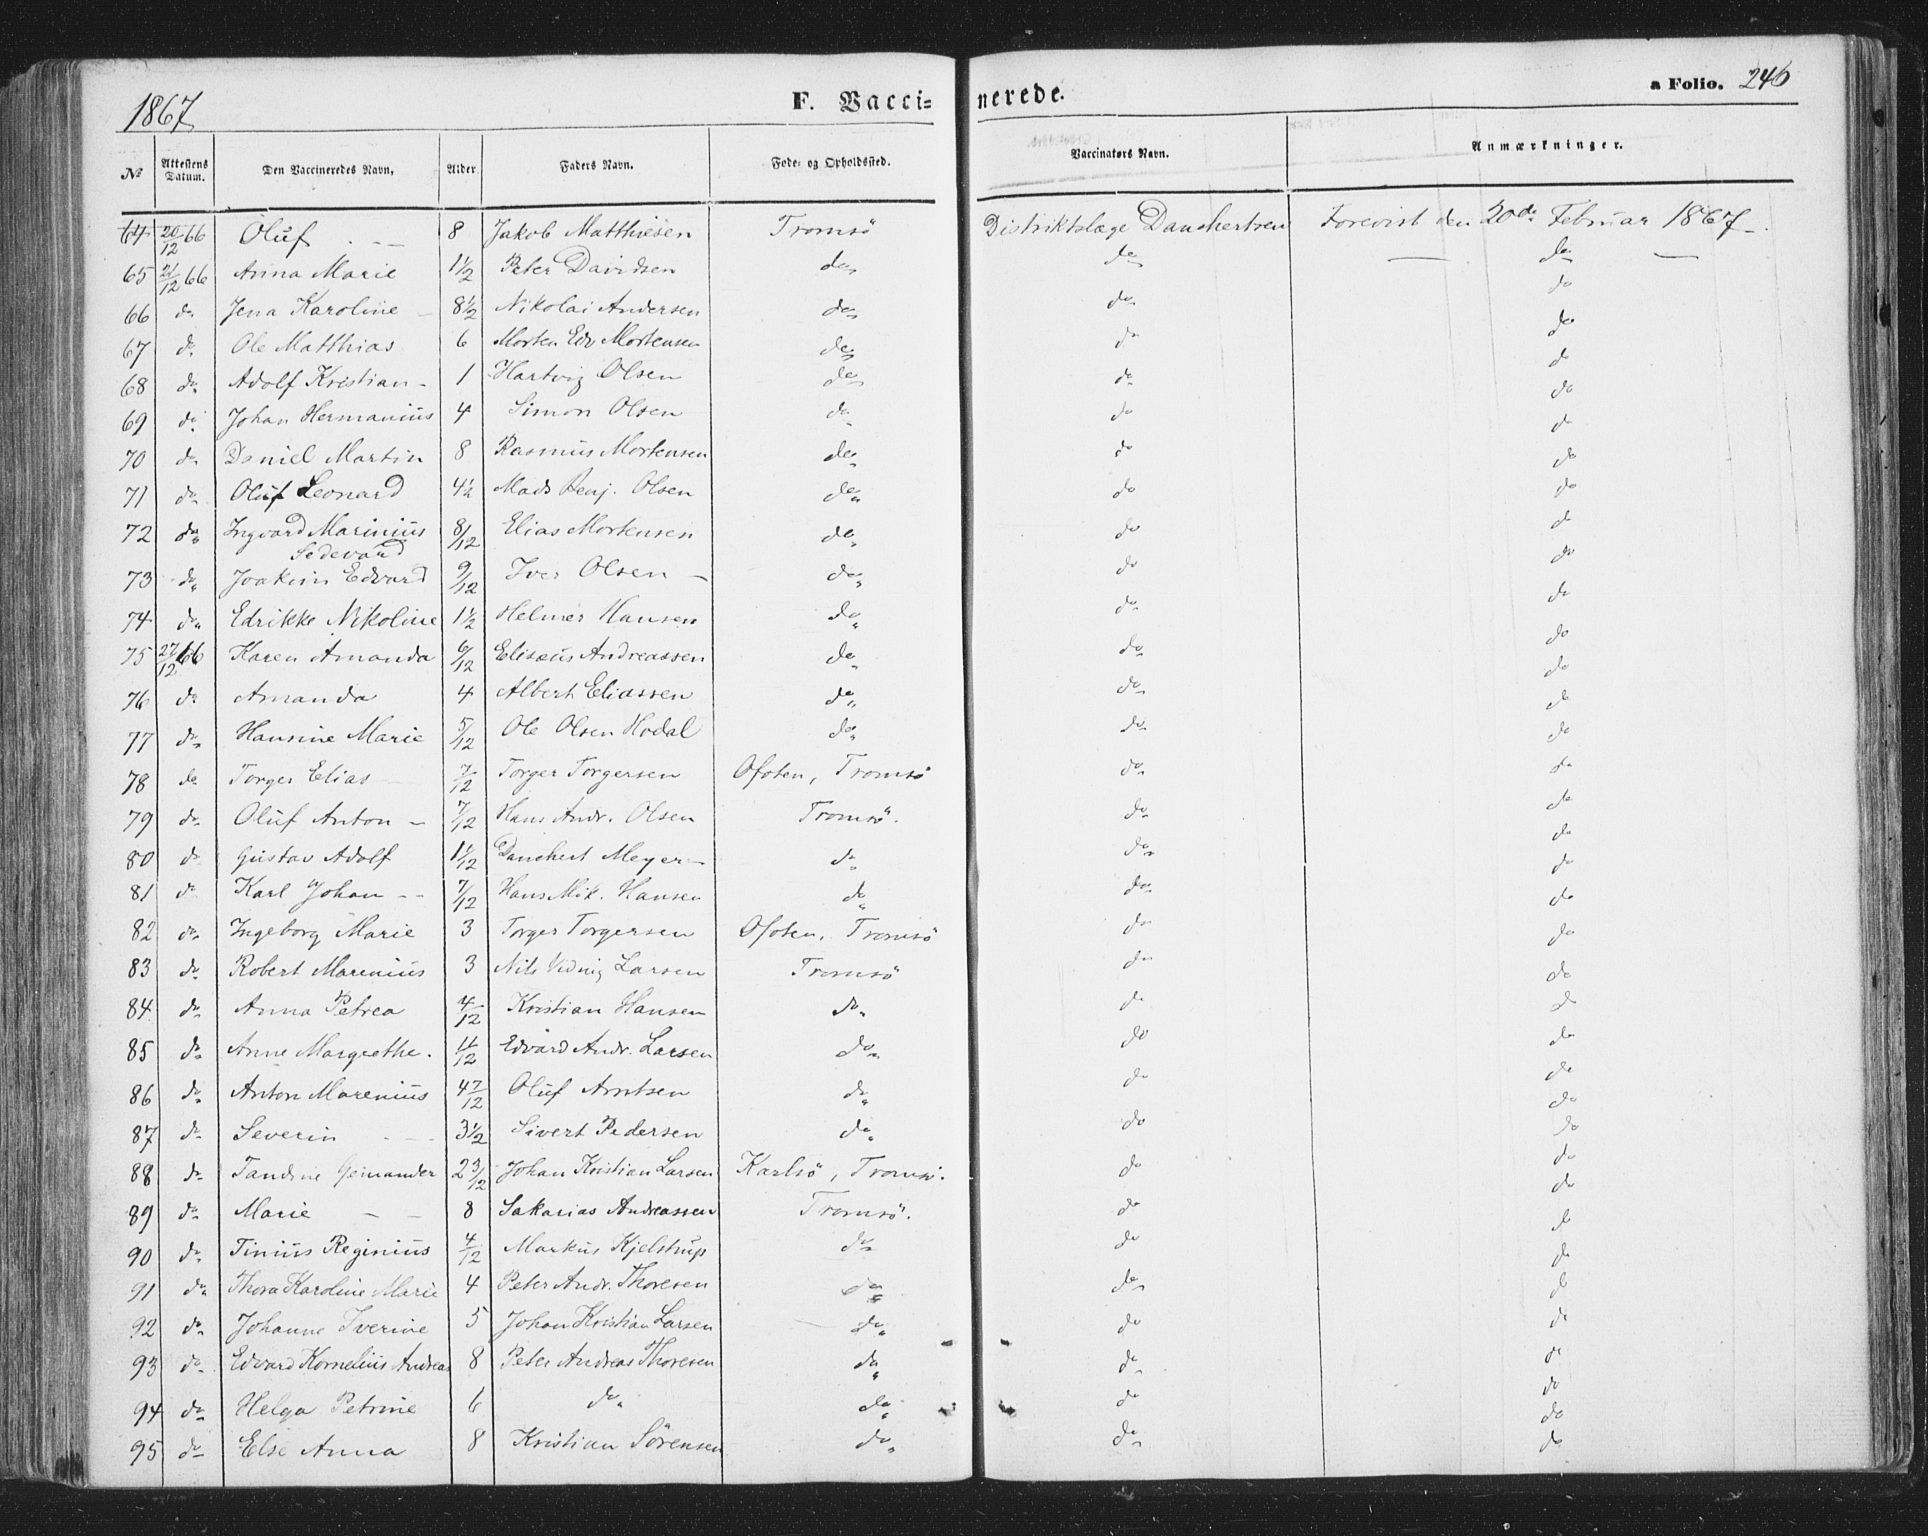 1867 F. Vacci= nerede. a Folio. 246
No Attestens Datum. Den Vaccineredes Navn, Alder Faders Navn. Føde- og Opholdssted. Vaccinatørs Navn. Anmærkninger.
64 20/12 66 Oluf 8 Jakob Matthiesen Tromsö Distriktslæge Danchertsen Forevist den 20de Februar 1867.
65 21/12 66 Anna Marie 1½ Peter Davidsen do do — do —
66 do Jena Karoline 8½ Nikolai Andersen do do do
67 do Ole Matthias 6 Morten Edv Mortensen do do do
68 do Adolf Kristian 1 Hartvig Olsen do do do
69 do Johan Hermanius 4 Simon Olsen do do do
70 do Daniel Martin 8 Rasmus Mortensen do do do
71 do Oluf Leonard 4½ Mads Benj. Olsen do do do
72 do Ingvard Marinius Sedevard 8/12 Elias Mortensen do do do
73 do Joakim Edvard 9/12 Iver Olsen do do do
74 do Edrikke Nikoline 1½ Helmer Hansen do do do
75 27/12 66 Karen Amanda 6/12 Elisæus Andreassen do do do
76 do Amanda 4 Albert Eliassen do do do
77 do Hansine Marie 5/12 Ole Olsen Hodal do do do
78 do Torger Elias 7/12 Torger Torgersen Ofoten, Tromsö do do
79 do Oluf Anton 7/12 Hans Andr. Olsen Tromsö. do do
80 do Gustav Adolf 1 1/12 Danchert Meyer do do do
81 do Karl Johan 7/12 Hans Mik. Hansen do do do
82 do Ingeborg Marie 3 Torger Torgersen Ofoten, Tromsö do do
83 do Robert Marenius 3 Nils Larsen Tromsö do do
84 do Anna Petrea 4/12 Kristian Hansen do do do
85 do Anne Margrethe. 11/12 Edvard Andr. Larsen do do do
86 do Anton Marenius 4 7/12 Oluf Arntsen do do do
87 do Severin 3½ Sivert Pedersen do do do
88 do Tandine 2 3/12 Johan Kristian Larsen Karlsö, Tromsö. do do
89 do Marie 8 Sakarias Andreassen Tromsö. do do
90 do Tinius Reginius 4/12 Markus Kjelstrup do do do
91 do Thora Karoline Marie 4 Peter Andr. Thoresen do do do
92 do Johanne Iverine 5 Johan Kristian Larsen do do do
93 do Edvard Kornelius Andreas 8 Peter Andreas Thoresen do do do
94 do Helga Petrine 6 do do do do
95 do Else Anna 8 Kristian Sörensen do do do